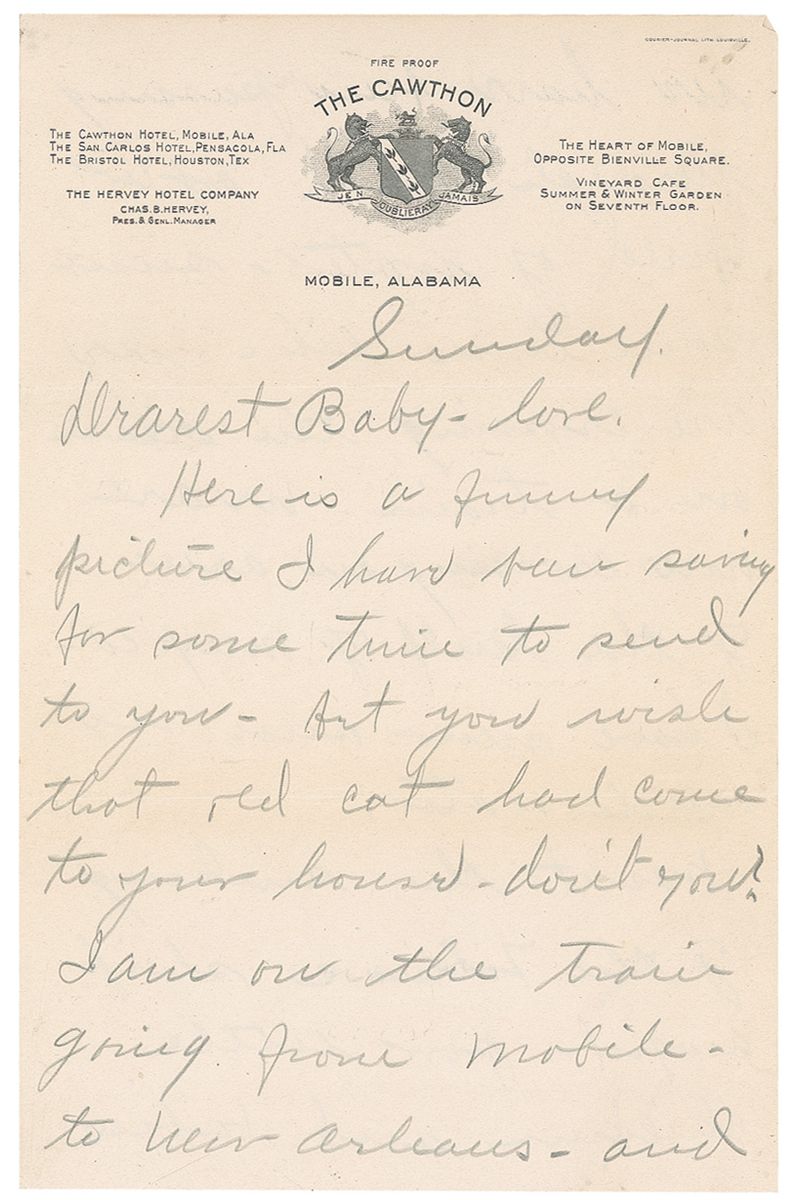 COURIER-JOURNAL LITH. LOUISVILLE.
FIRE PROOF
THE CAWTHON
THE CAWTHON HOTEL, MOBILE, ALA
THE SAN CARLOS HOTEL, PENSACOLA, FLA
THE BRISTOL HOTEL, HOUSTON, TEX
THE HERVEY HOTEL COMPANY
CHAS. B. HERVEY,
PRES. & GENL. MANAGER
JE N OUBLIERAY JAMAIS
THE HEART OF MOBILE,
OPPOSITE BIENVILLE SQUARE.
VINEYARD CAFE
SUMMER & WINTER GARDEN
ON SEVENTH FLOOR.
MOBILE, ALABAMA
Sunday.
Dearest Baby - love.
Here is a funny
picture I have been saving
for some time to send
to you - you wish
that red cat had come
to your house - don't you?
I am on the train
going from Mobile -
to New Orleans - and